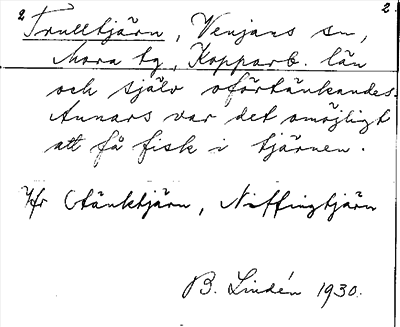 2 2
Trulltjärn, Venjans sn,
Mora tg, Kopparb. län
och själv oförtänkandes.
Annars var det omöjligt
att få fisk i tjärnen.
Jfr Otänktjärn, Niffingtjärn
B. Lindén 1930.